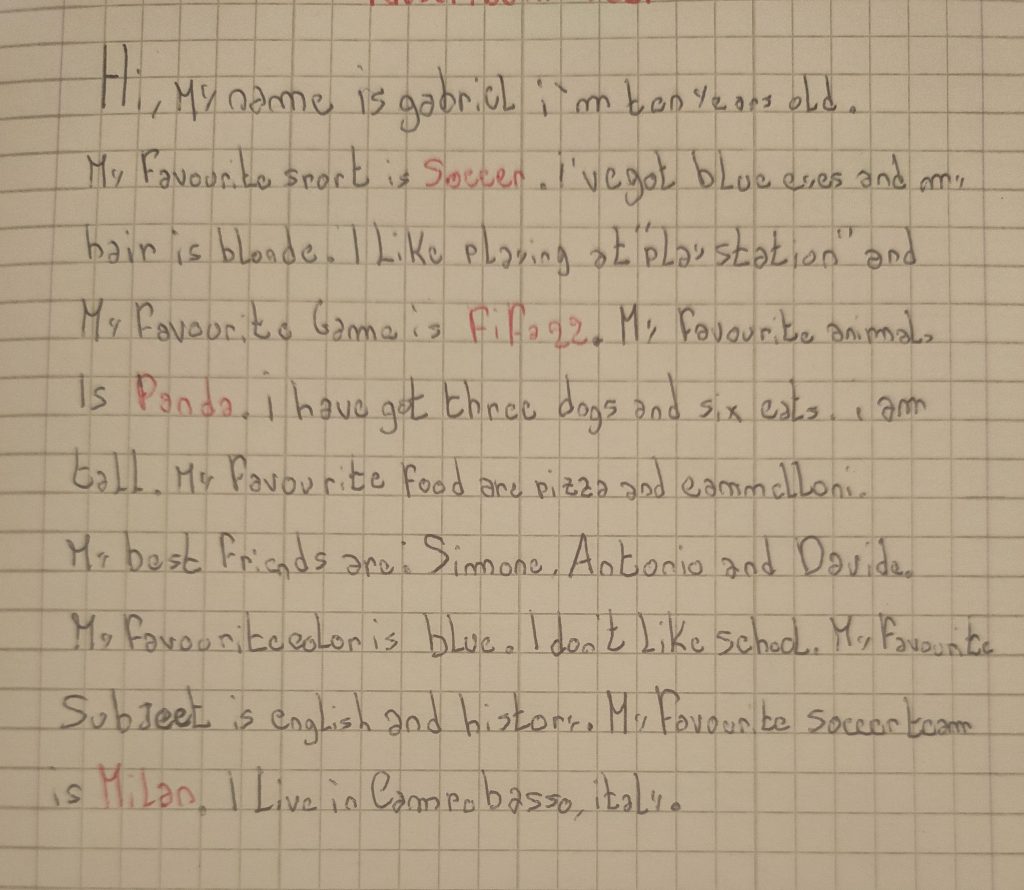 Hi, My name is gabriel i'm ten years old.
My Favourite sport is Soccer. i've got blue eyes and my
hair is blonde. I Like playing at "playstation" and
My Favourite Game is Fifa22. My Favourite animal
Is Panda. i have got three dogs and six cats. i am
tall. My Favourite Food are pizza and cammelloni.
My best Friends are: Simone, Antonio and Davide.
My Favourite color is blue. I don't Like school. My Favourite
Subject is english and history. My Favourite soccer team
is Milan. I Live in Campobasso, italy.